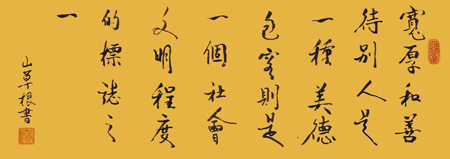 寬厚和善
待别人是
一種美德
包容則是
一個社會
文明程度
的標誌之
一
山草根書